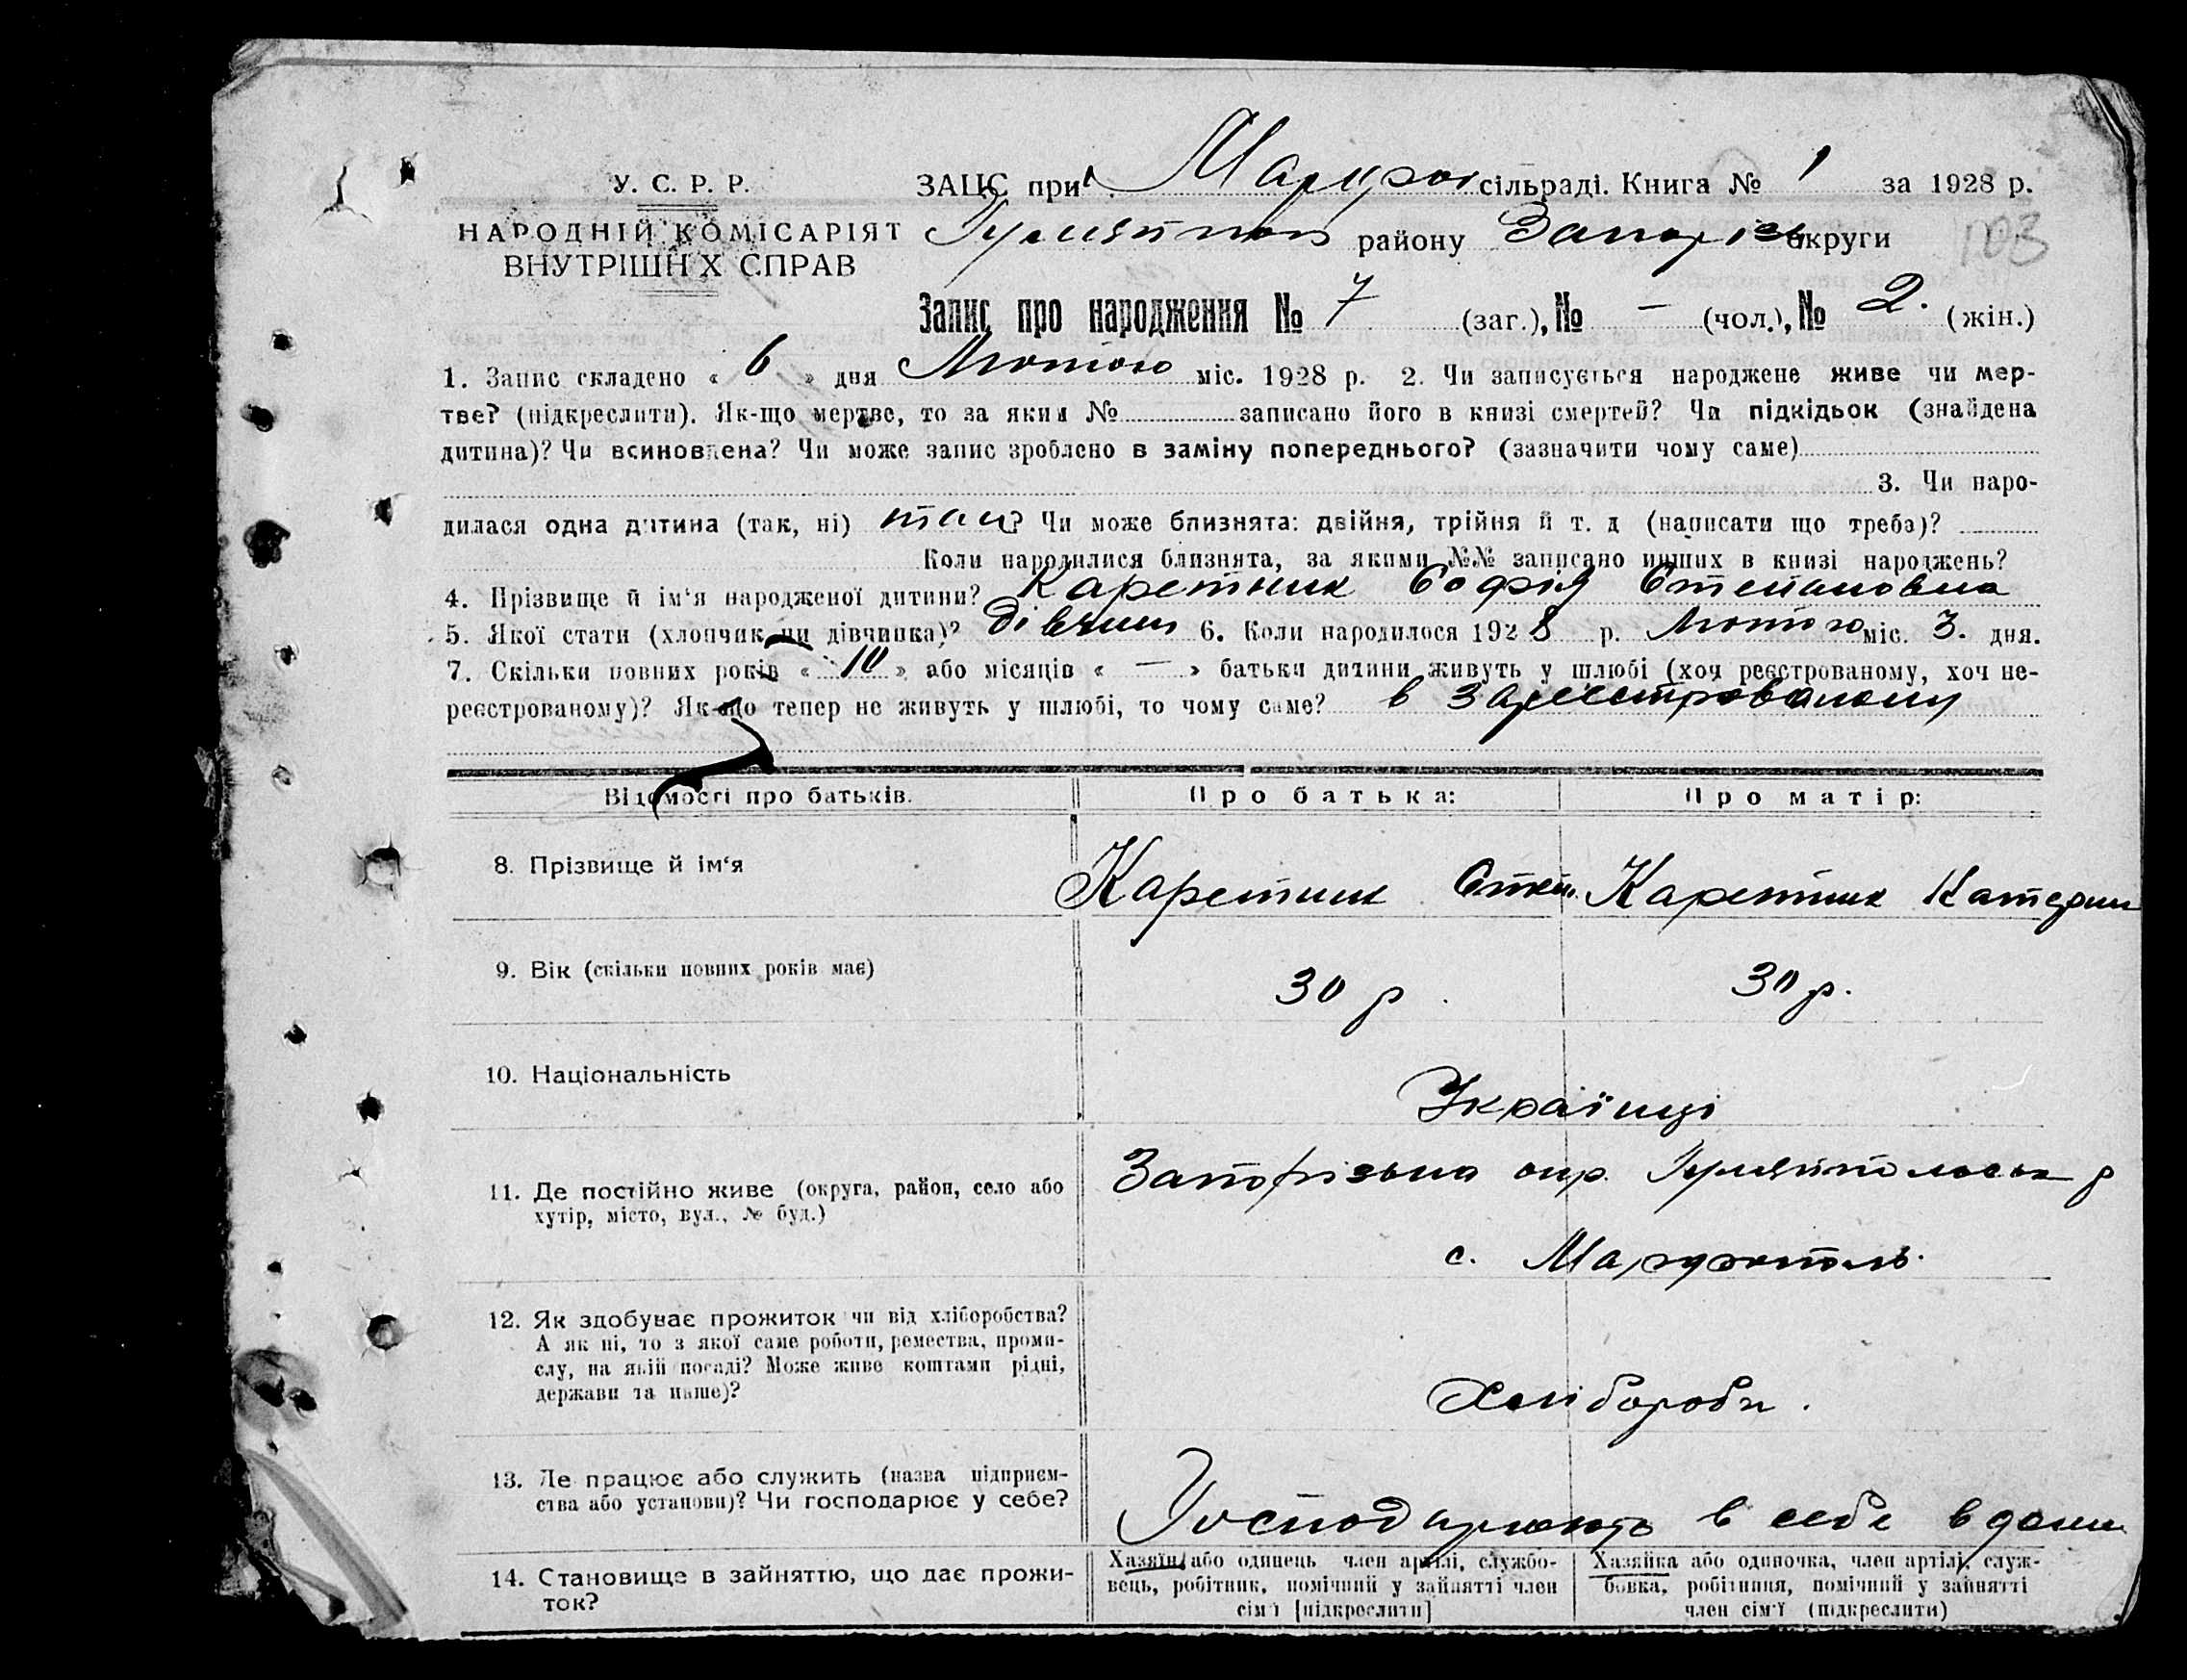 У. С. Р. Р.
ЗАЦС при Марфоп сільраді. Книга № 1 за 1928 р.
НАРОДНІЙ КОМІСАРІЯТ
ВНУТРІШНІХ СПРАВ
Гуляйпол району Запоріз округи
103
Запис про народження № 7 (заг.), № — (чол.), № 2. (жін.)
1. Запис складено « 6 » дня Лютого міс. 1928 р. 2. Чи записується народжене живе чи мер-
тве? (підкреслити). Як-що мертве, то за яким № записано його в книзі смертей? Чи підкідьок (знайдена
дитина)? Чи всиновлена? Чи може запис зроблено в заміну попереднього? (зазначити чому саме)
3. Чи наро-
дилася одна дитина (так, ні) так? Чи може близнята: двійня, трійня й т. д (написати що треба)?
Коли народилися близнята, за якими №№ записано инших в книзі народжень?
4. Прізвище й ім'я народженої дитини? Каретник Софія Степановна
5. Якої стати (хлопчик чи дівчинка)? дівчин 6. Коли народилося 1928 р. Лютого міс. 3. дня.
7. Скільки повних років « 10 » або місяців « — » батьки дитини живуть у шлюбі (хоч реєстрованому, хоч не-
реєстрованому)? Як-що тепер не живуть у шлюбі, то чому саме? в зареєстрованому
Відомості про батьків.
Про батька:
Про матір:
8. Прізвище й ім'я
Каретник Степ.
Каретник Катерин
9. Вік (скільки повних років має)
30 р.
30 р.
10. Національність
Українці
11. Де постійно живе (округа, район, село або
хутір, місто, вул., № буд.)
Запорізька окр. Гуляйпольськ р
с. Марфополь.
12. Як здобуває прожиток чи від хліборобства?
А як ні, то з якої саме роботи, ремества, проми-
слу, на якій посаді? Може живе коштами рідні,
держави та инше)?
Хлібороби.
13. Де працює або служить (назва підприєм-
ства або установи)? Чи господарює у себе?
Господарюють в себе вдома
14. Становище в зайняттю, що дає прожи-
ток?
Хазяїн або одинець член артілі, службо-
вець, робітник, помічний у зайнятті член
сім'ї [підкреслити]
Хазяйка або одиночка, член артілі, служ-
бовка, робітниця, помічний у зайнятті
член сім'ї (підкреслити)